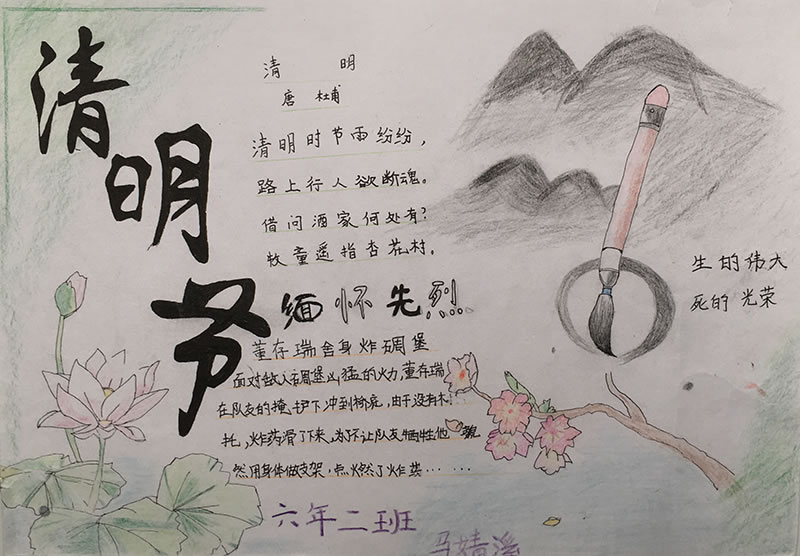 清明节
清 明
唐 杜甫
清明时节雨纷纷，
路上行人欲断魂。
借问酒家何处有？
牧童遥指杏花村。
缅怀先烈……
董存瑞舍身炸碉堡
面对敌人碉堡凶猛的火力，董存瑞
在队友的掩护下冲到桥底，由于没有木
托，炸药滑了下来，为了不让队友牺牲他毅
然用身体做支架，点燃了炸药… …
生的伟大
死的光荣
六年二班
马婧